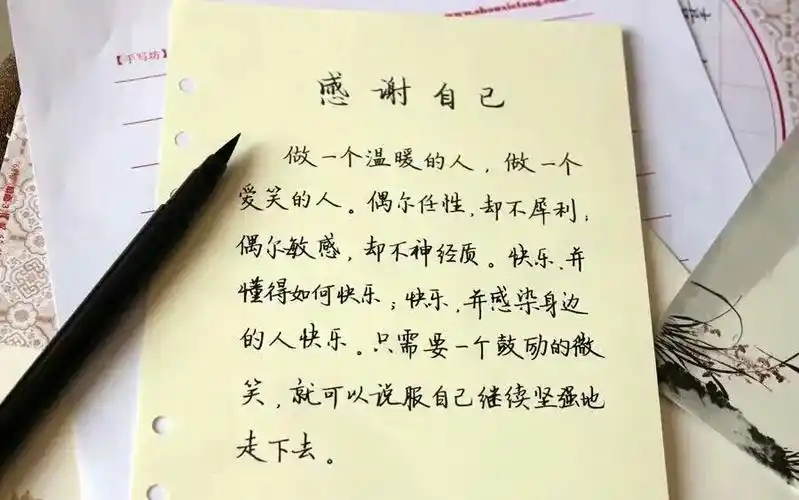 【手写坊】
感谢自己
做一个温暖的人，做一个
爱笑的人。偶尔任性，却不犀利；
偶尔敏感，却不神经质。快乐，并
懂得如何快乐；快乐，并感染身边
的人快乐。只需要一个鼓励的微
笑，就可以说服自己继续坚强地
走下去。